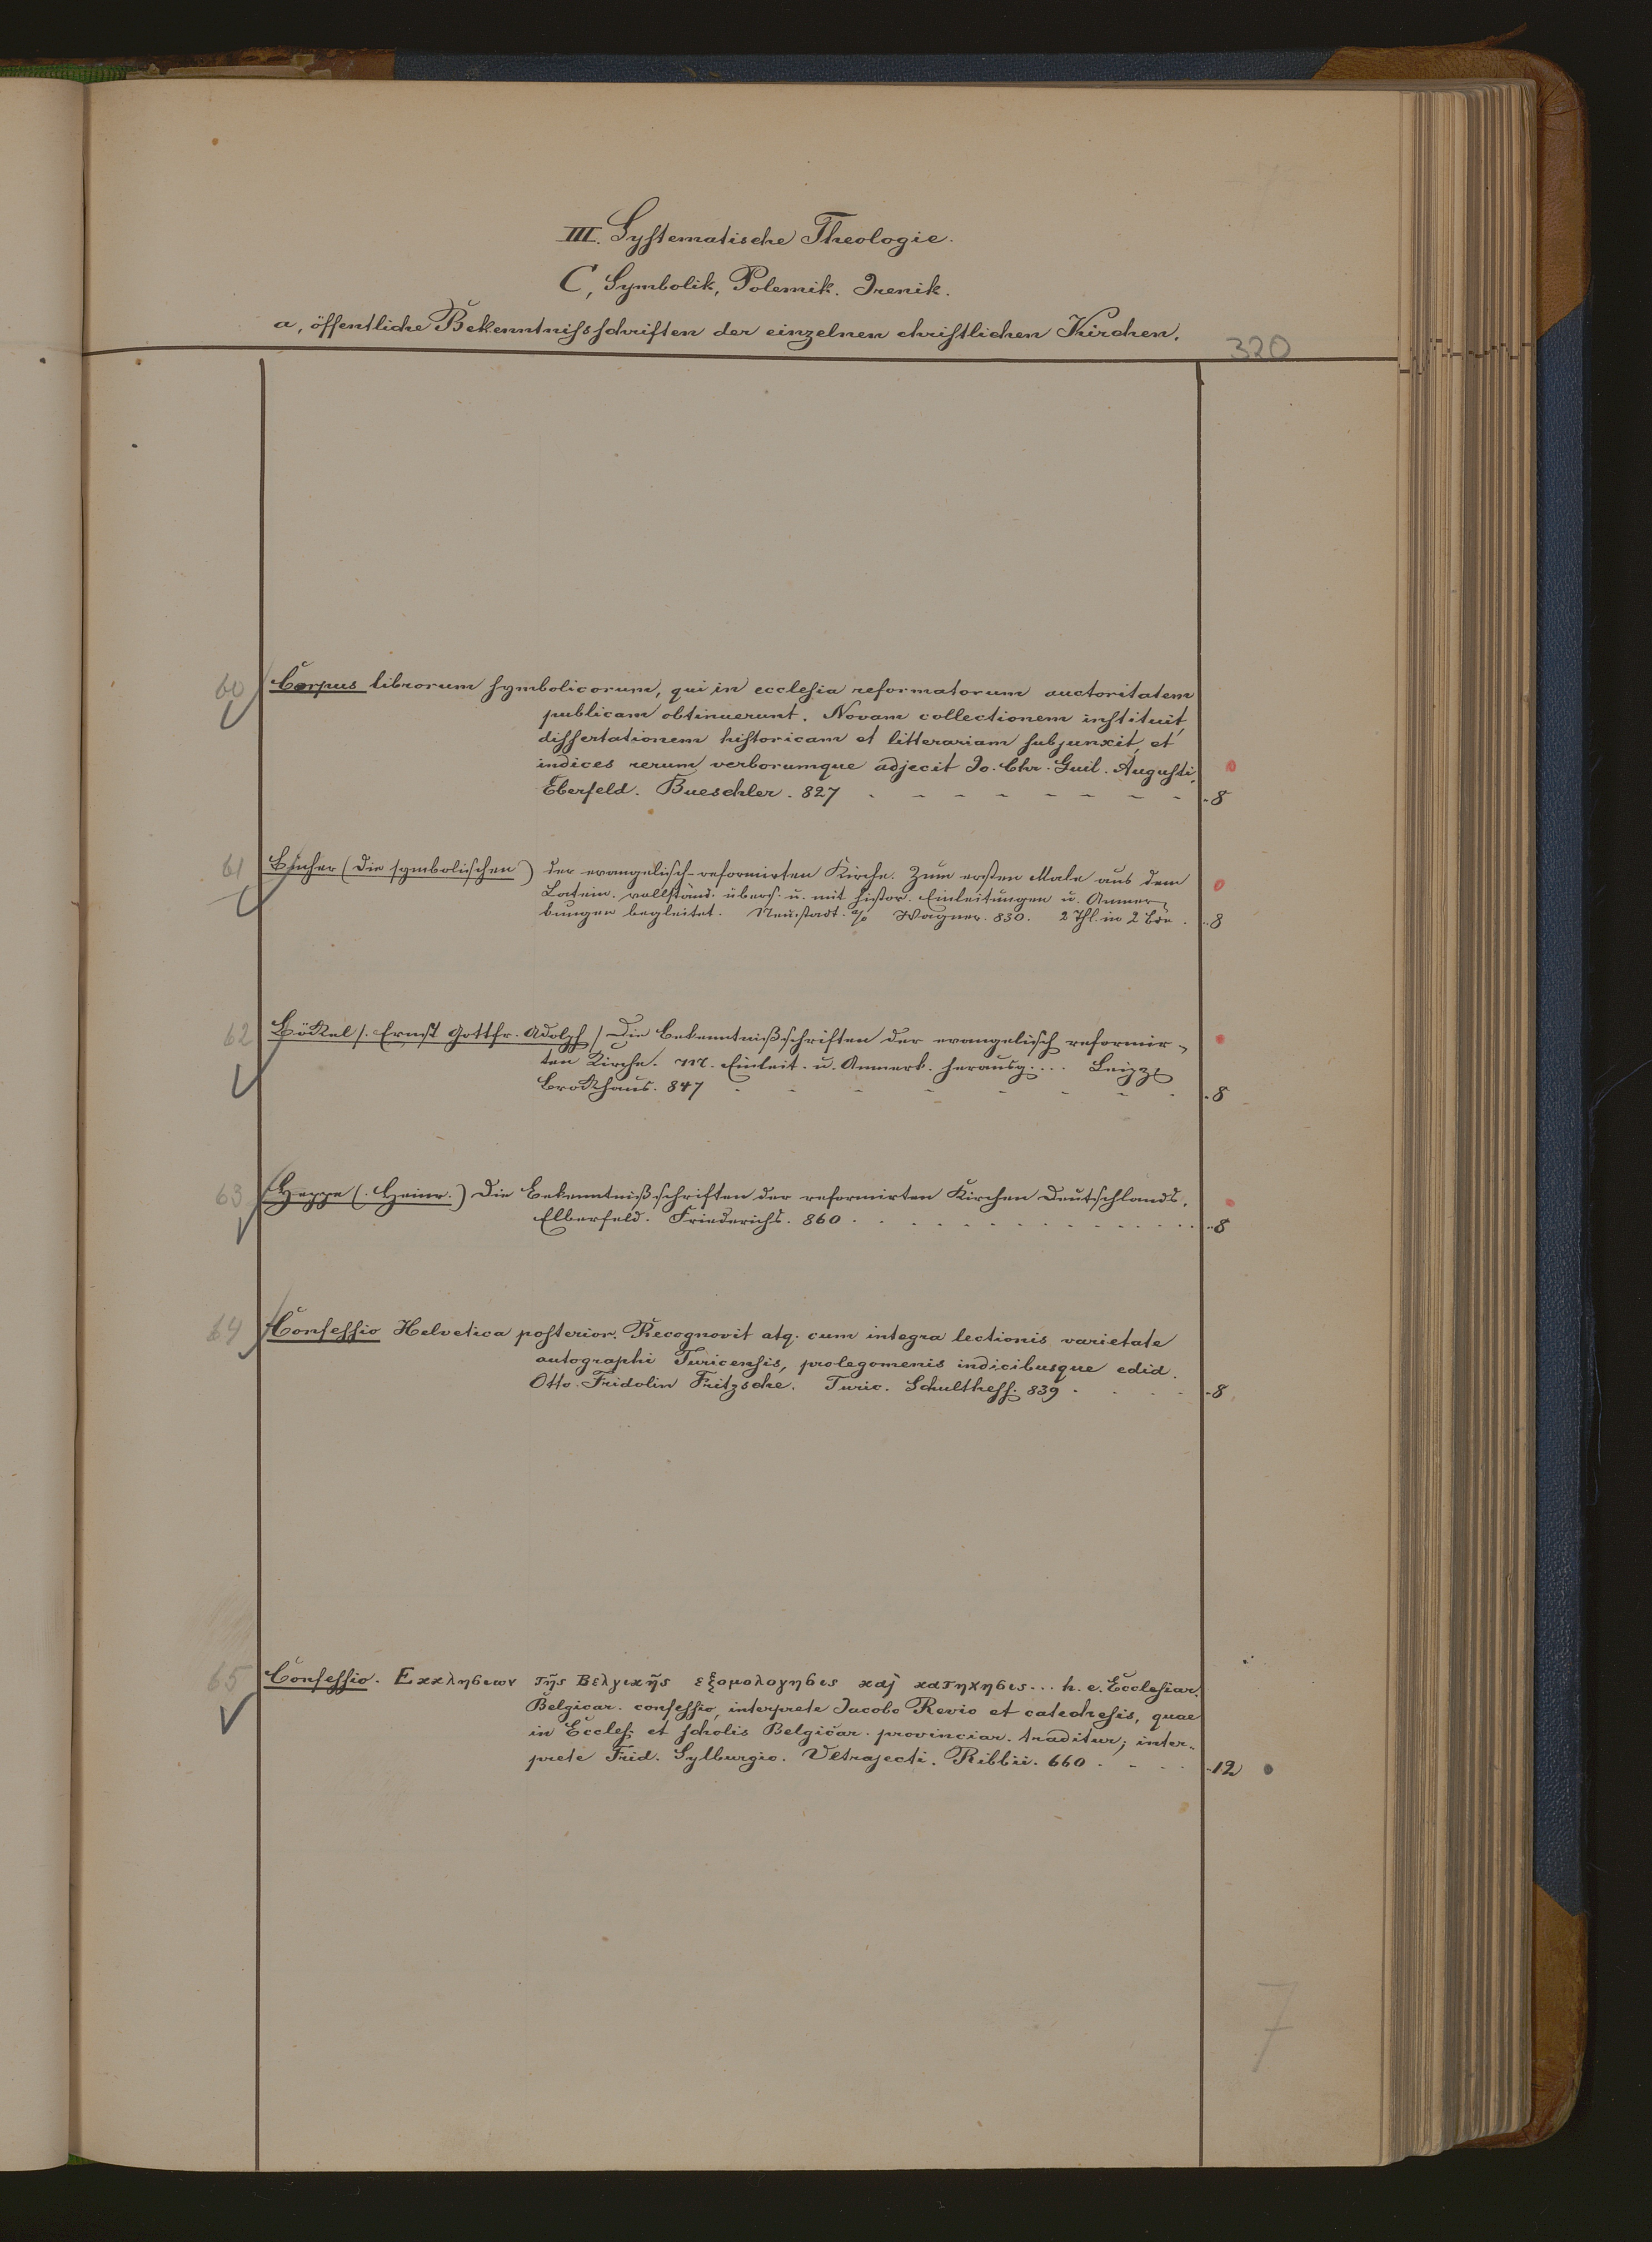 III. Systematische Theologie.
C, Symbolik, Polemik. Irenik.
a, öffentliche Bekenntnissschriften der einzelnen christlichen Kirchen.
320
60 Corpus librorum symbolicorum, qui in ecclesia reformatorum auctoritatem
publicam obtinuerunt. Novam collectionem instituit,
dissertationem historicam et litterariam subjunxit, et
indices rerum verborumque adjecit Jo. Chr. Guil. Augusti,
Eberfeld. Bueschler. 827 - - - - - - - - 8
61 Bücher (Die symbolischen) der evangelisch-reformirten Kirche. Zum ersten Male aus dem
Latein. vollständ. übers. u. mit histor. Einleitungen u. Anmer-
kungen begleitet. Neustadt a/o Wagner. 830. 2 Thl. in 2 Bdn. - 8
62 Böckel (. Ernst Gottfr. Adolph) Die Bekenntnißschriften der evangelisch reformir-
ten Kirche. M. Einleit. u. Anmerk. herausg. ... Leipz.
Brockhaus. 847 - - - - - - - - 8
63 Heppe (. Heinr.) Die Bekenntnißschriften der reformirten Kirchen Deutschlands.
Elberfeld. Friederichs. 860 . . . . . . . . . . . - 8
64 Confessio Helvetica posterior. Recognovit atq. cum integra lectionis varietate
autographi Turicensis, prolegomenis indicibusque edid.
Otto Fridolin Fritzsche. Turic. Schulthess. 839 . . . . - 8
65 Confessio. Εκκλησιων τῆς Βελγικῆς εξομολογησις και κατηχησις... h. e. Ecclesiar.
Belgicar. confessio, interprete Jacobo Revio et catechesis, quae
in Eccles. et scholis Belgicar. provinciar. traditur; inter-
prete Frid. Sylburgio. Ultrajecti. Ribbii. 660 . . . . - 12
7